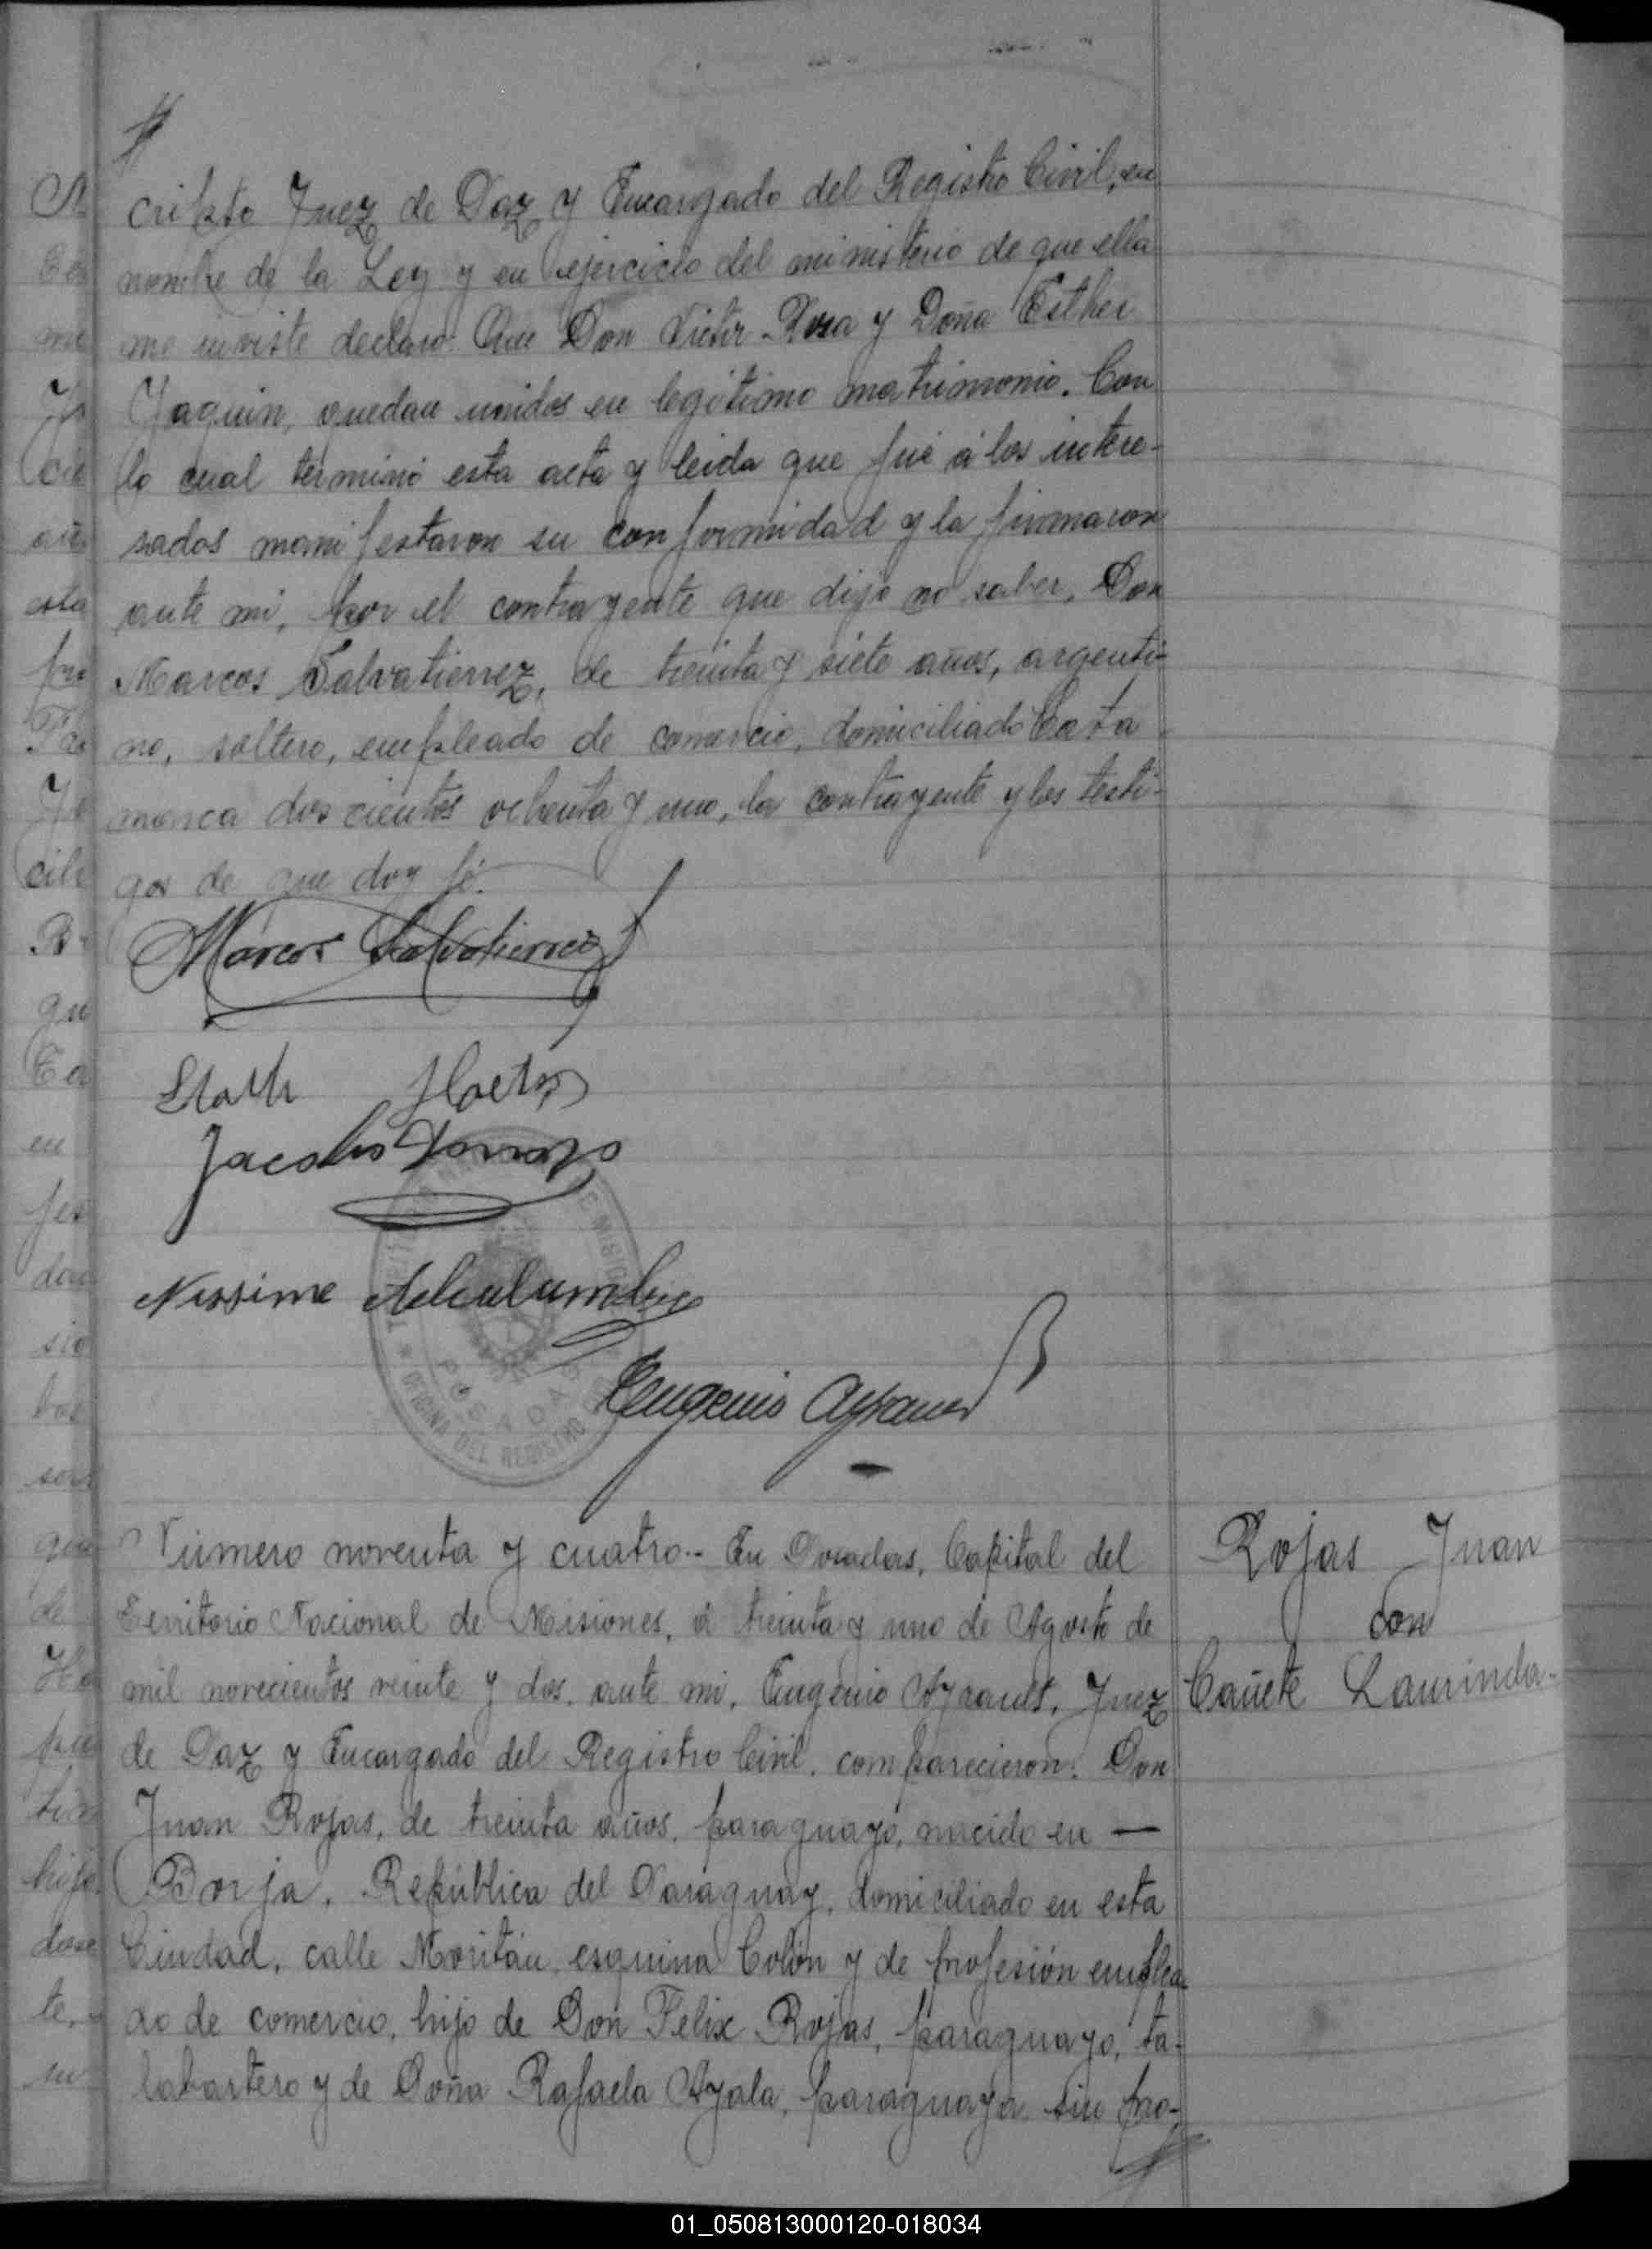 cripto Juez de Paz y Encargado del Registro Civil, en
nombre de la Ley y en ejercicio del ministerio de que ella
me inviste declaro: Que Don Victor Rosa y Doña Esther
Yaquin, quedan unidos en legitimo matrimonio. Con
lo cual terminó esta acta y leida que fué á los intere-
sados manifestaron su conformidad y la firmaron
ante mi, por el contrayente que dijo no saber, Don
Marcos Salvatierrez, de treinta y siete años, argenti-
no, soltero, empleado de comercio, domiciliado Cata
marca dos cientos ochenta y uno, la contrayente y los testi-
gos de que doy fé.
Marcos Salvatierrez
Jacobo
Nissime
TERRITORIO DE MISIONES
POSADAS
OFICINA DEL REGISTRO
Eugenio Ayrault
Número noventa y cuatro.- En Posadas, Capital del
Territorio Nacional de Misiones, á treinta y uno de Agosto de
mil novecientos veinte y dos, ante mi, Eugenio Ayrault, Juez
de Paz y Encargado del Registro Civil, comparecieron: Don
Juan Rojas, de treinta años, paraguayo, nacido en —
Borja, República del Paraguay, domiciliado en esta
Ciudad, calle Moritán esquina Colón y de profesión emplea-
do de comercio, hijo de Don Felix Rojas, paraguayo, ta-
labartero y de Doña Rafaela Ayala, paraguaya, sin pro-
Rojas Juan
con
Cañete Laurinda-
01_050813000120-018034